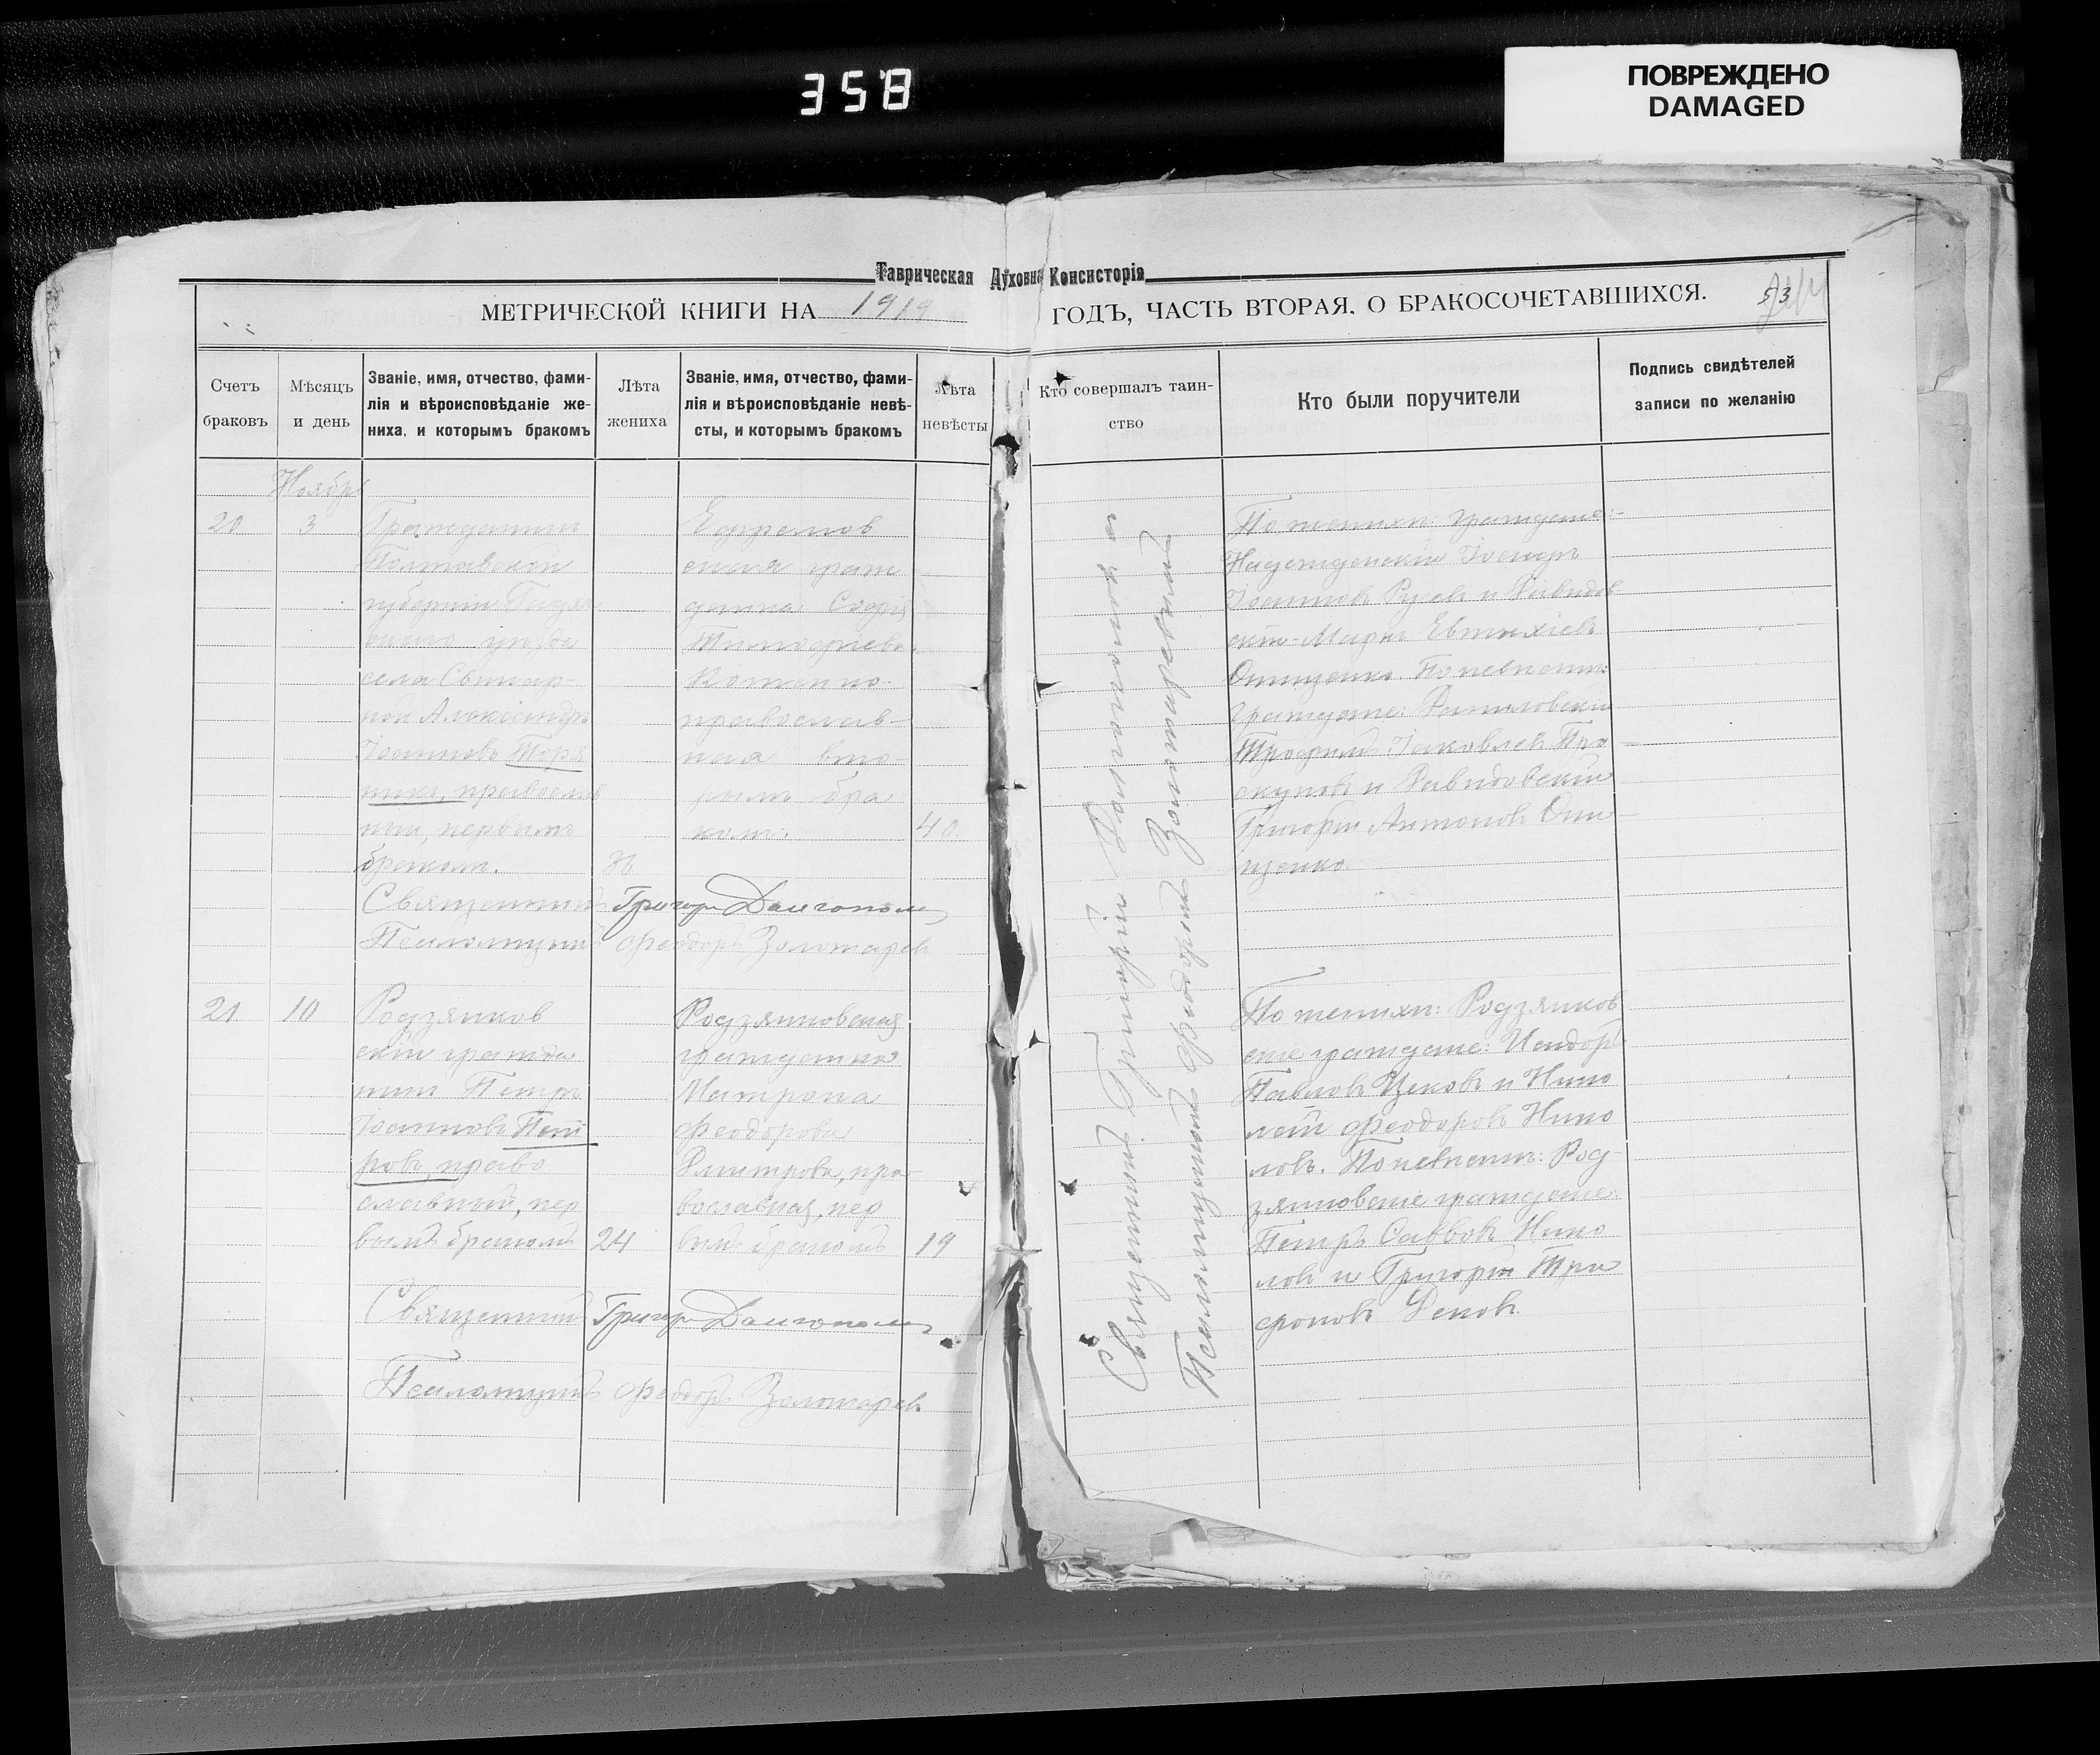 358
ПОВРЕЖДЕНО
DAMAGED
Таврическая Духовна Консисторія
МЕТРИЧЕСКОЙ КНИГИ НА 1919
ГОДЪ, ЧАСТЬ ВТОРАЯ, О БРАКОСОЧЕТАВШИХСЯ.
53
Счетъ браковъ
Мѣсяцъ и день
Званіе, имя, отчество, фами-
лія и вѣроисповѣданіе же-
ниха, и которымъ бракомъ
Лѣта жениха
Званіе, имя, отчество, фами-
лія и вѣроисповѣданіе невѣ-
сты, и которымъ бракомъ
Лѣта невѣсты
Кто совершалъ таин-
ство
Кто были поручители
Подпись свидѣтелей
записи по желанію
Ноябрь
20
3
Гражданинъ
Полтавской
губерніи
уѣзда
села
Александръ
Іоанновъ
православ
ный, первымъ
бракомъ.
Ефремов
ская граж
данка Софія
Тимофіева
православ-
ная вто-
рымъ бра
комъ.
40
По женихѣ: граждане:
Іоанновъ Русевъ и Давидов
Евтихіевъ
Онищенко. По невѣстѣ:
граждане:
Трофимъ Іаковлевъ Про
скуновъ и Давидовскій
Григорій Антоновъ Они-
щенко.
Священникъ Григорій
Псаломщикъ Феодоръ Золотаревъ
21
10
Родзянков
скій гражда
нинъ Петръ
Іоанновъ
ровъ, право
славный, пер
вымъ бракомъ
24
Родзянковская
гражданка
Матрона
Феодорова
Дмитрова, пра-
вославная, пер
вымъ бракомъ
19
По женихѣ: Родзянков
скіе граждане: Исидоръ
Павловъ и Нико
лай Феодоровъ Нико
ловъ. По невѣстѣ: Род-
зянковскіе граждане:
Петръ Саввовъ Нико
ловъ и Григорій Три
фоновъ
Священникъ Григорій
Псаломщикъ Феодоръ Золотаревъ
Священникъ Григорій
Псаломщикъ Феодоръ